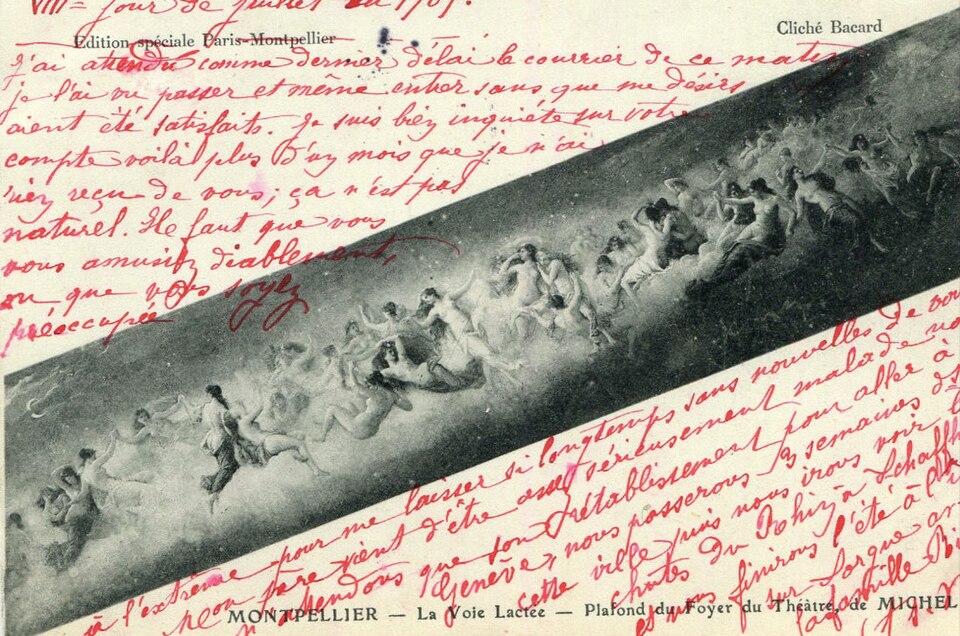 VIII= jour de juillet
Edition spéciale Paris-Montpellier
Cliché Bacard
J'ai attendu comme dernier délai le courrier de ce matin
je l'ai vu passer et même entrer sans que me désirs
aient été satisfaits. Je suis bien inquiète sur votre
compte voilà plus d'un mois que je n'ai
rien reçu de vous; ça n'est pas
naturel. Il faut que vous
vous amusiez diablement,
ou que vous soyez
préoccupée
à l'extrême pour me laisser si longtemps sans nouvelles de vous
Mon père vient d'être assez sérieusement malade
attendons que son rétablissement pour aller à
Genève, nous passerons 3 semaines ds
cette ville puis nous irons voir
chutes du Rhin à Schaffh
et nous finirons l'été à l'
sur Sorgue
la famille
MONTPELLIER — La Voie Lactée — Plafond du Foyer du Théâtre, de MICHEL